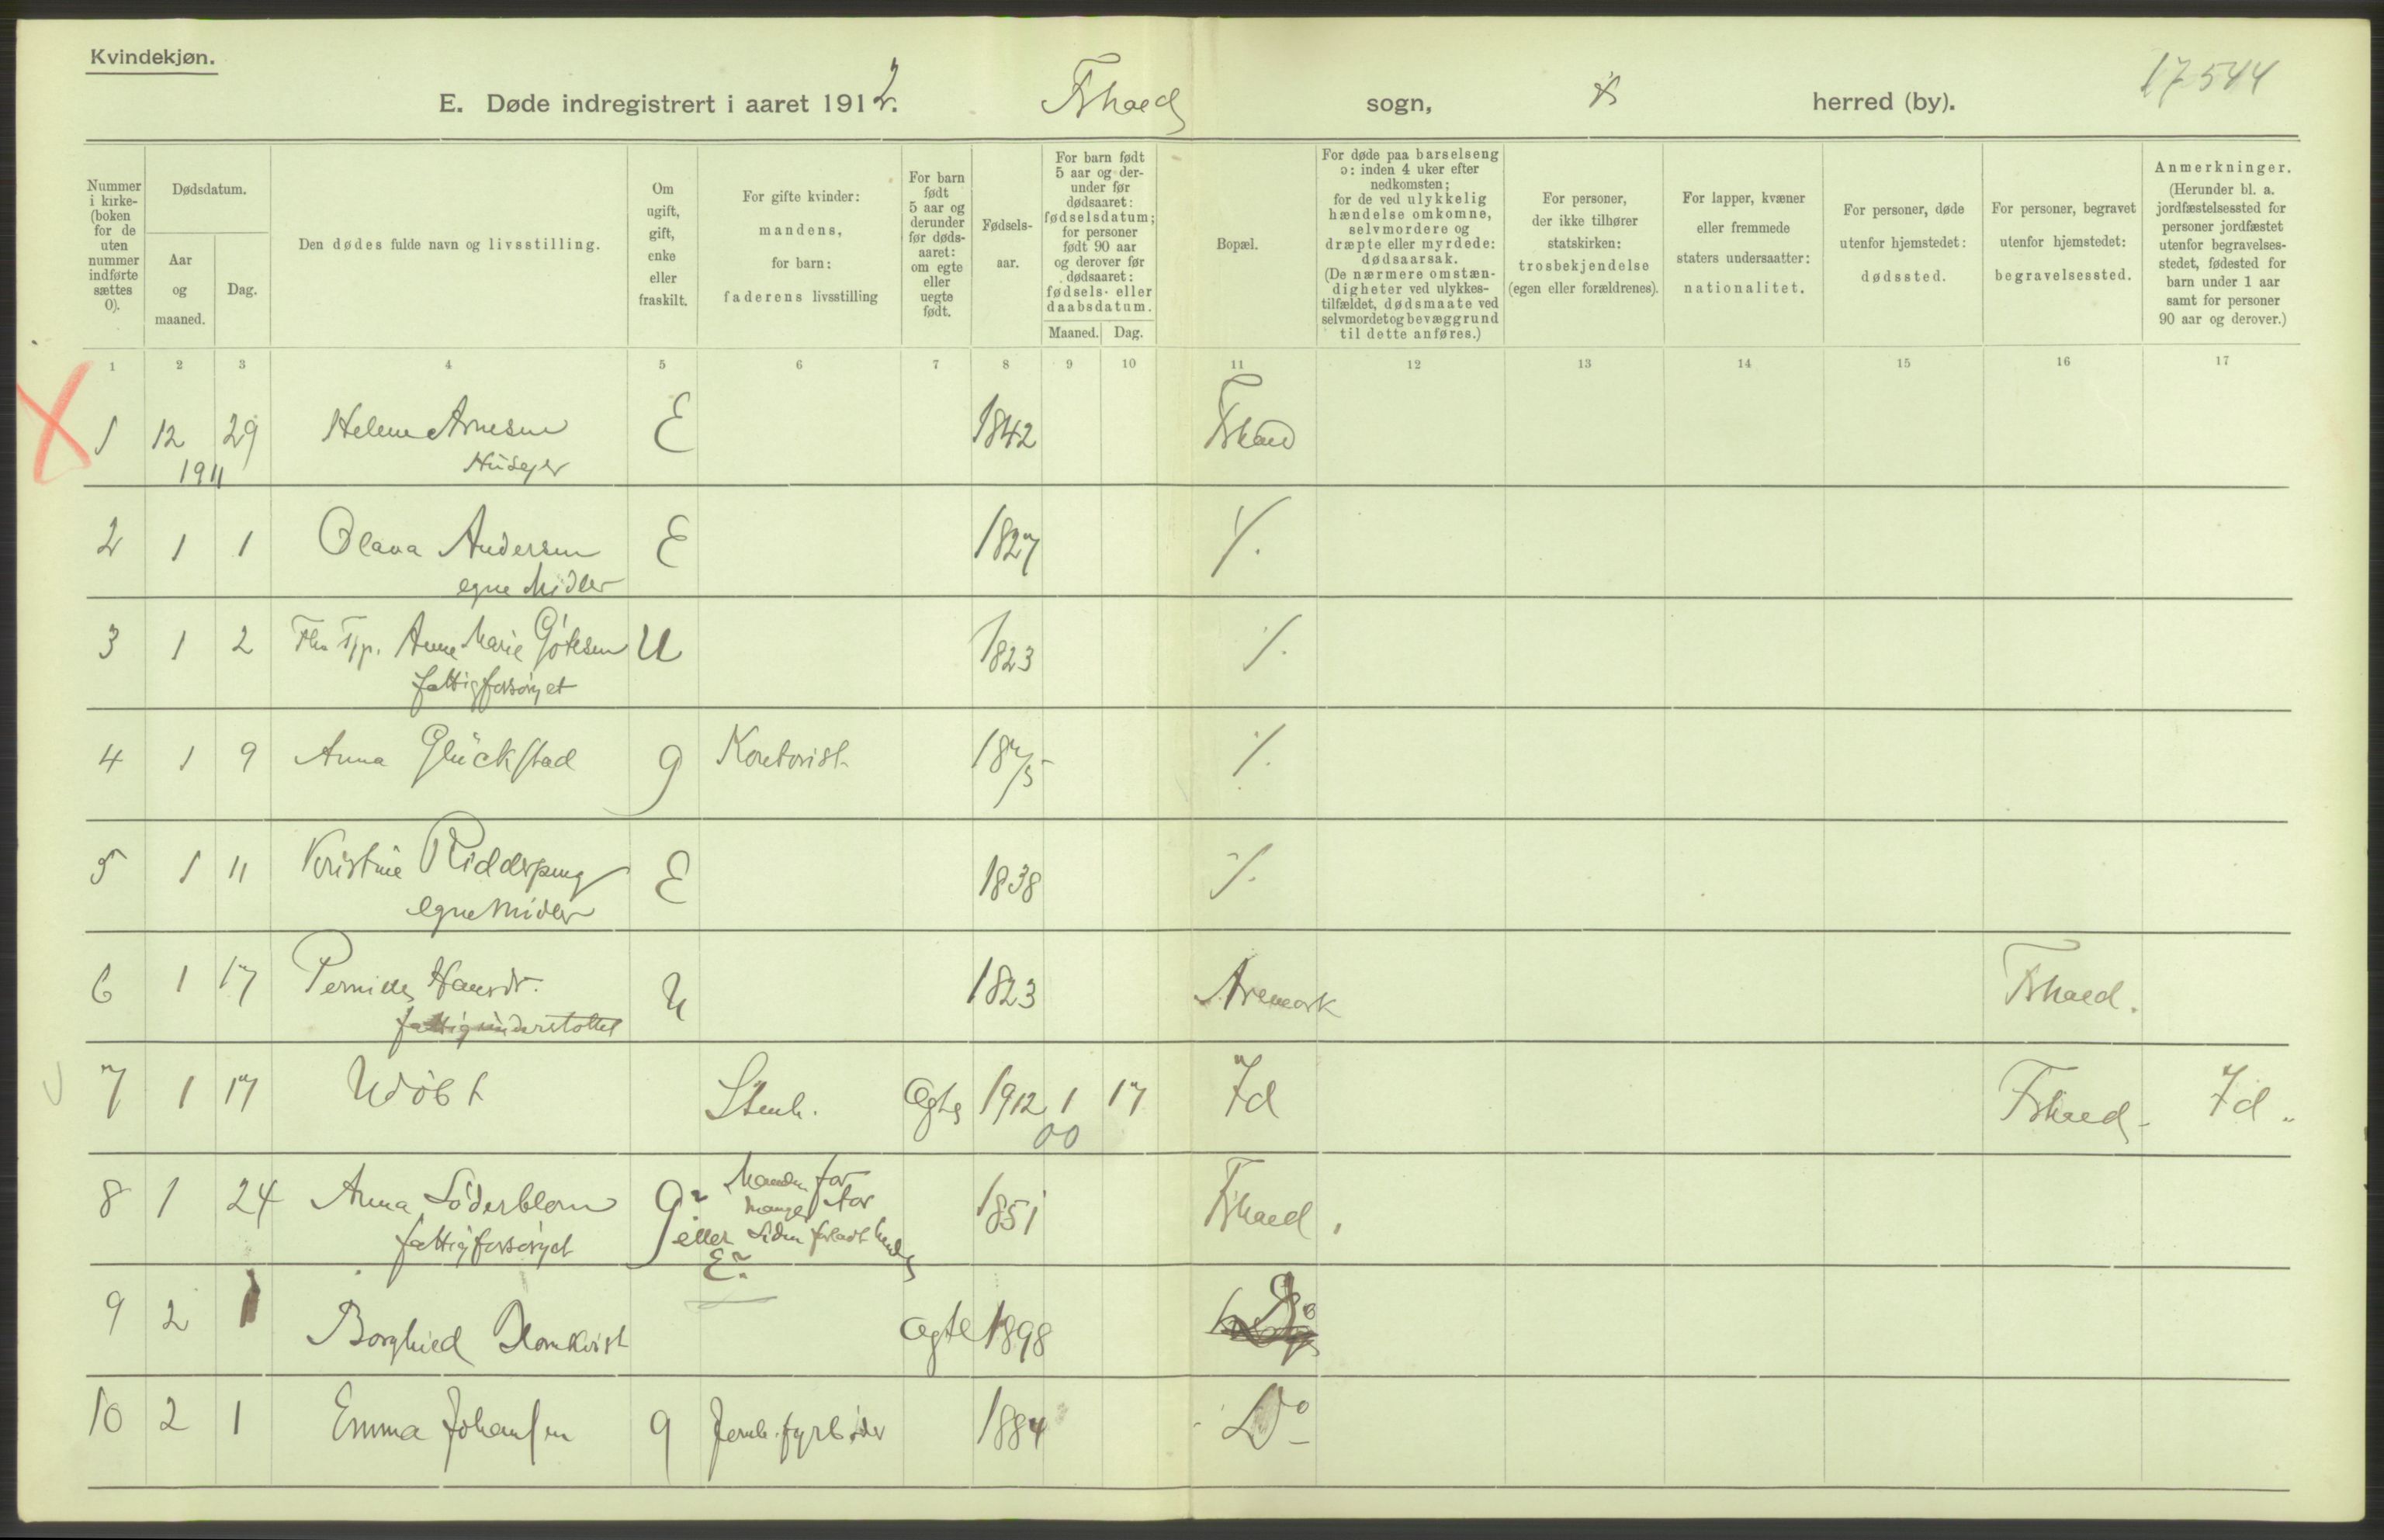 Kvindekjøn.
17544
E. Døde indregistrert i aaret 1912. Fshald sogn, herred (by).
Nummer i kirke- (boken for de uten nummer indførte sættes 0).
Dødsdatum.
Aar og maaned.
Dag.
Den dødes fulde navn og livsstilling.
Om ugift, gift, enke eller fraskilt.
For gifte kvinder: mandens, for barn: faderens livsstilling
For barn født 5 aar og derunder før døds- aaret: om egte eller uegte født.
Fødsels- aar.
For barn født 5 aar og der- under før dødsaaret: fødselsdatum; for personer født 90 aar og derover før dødsaaret: fødsels- eller daabsdatum.
Maaned. Dag.
Bopæl.
For døde paa barselseng ɔ: inden 4 uker efter nedkomsten; for de ved ulykkelig hændelse omkomne, selvmordere og dræpte eller myrdede: dødsaarsak. (De nærmere omstæn- digheter ved ulykkes- tilfældet, dødsmaate ved selvmordet og bevæggrund til dette anføres.)
For personer, der ikke tilhører statskirken: trosbekjendelse (egen eller forældrenes).
For lapper, kvæner eller fremmede staters undersaatter: nationalitet.
For personer, døde utenfor hjemstedet: dødssted.
For personer, begravet utenfor hjemstedet: begravelsessted.
Anmerkninger. (Herunder bl. a. jordfæstelsessted for personer jordfæstet utenfor begravelses- stedet, fødested for barn under 1 aar samt for personer 90 aar og derover.)
1 2 3 4 5 6 7 8 9 10 11 12 13 14 15 16 17
1 12 29 Helene Arnesen E 1842 Fshald
1911 Huseier
2 1 1 Olava Andersen E 1827 ⁒
egne Midler
3 1 2 Anne Marie Götesen U 1823 ⁒
fattigforsørget
4 1 9 Anna Glückstad g Kontorist 1875 ⁒
5 1 11 Kristine Ridderpung E 1838 ⁒
egne Midler
6 1 17 Hansdr. U 1823 Aremark Fshald.
fattigunderstøttet
7 1 17 Udöbt Stenh. Ægte 1912 1 17 Id Fshald- Id.
00
8 1 24 Anna Söderblom G? Manden for mange Aar 1851 Fshald,
fattigforsørget eller siden forladt hende
E?
9 2 1 Borghild Blomkvist Ægte 1898 Do
10 2 1 Emma Johansen g Jernb.fyrbøder 1884 Do